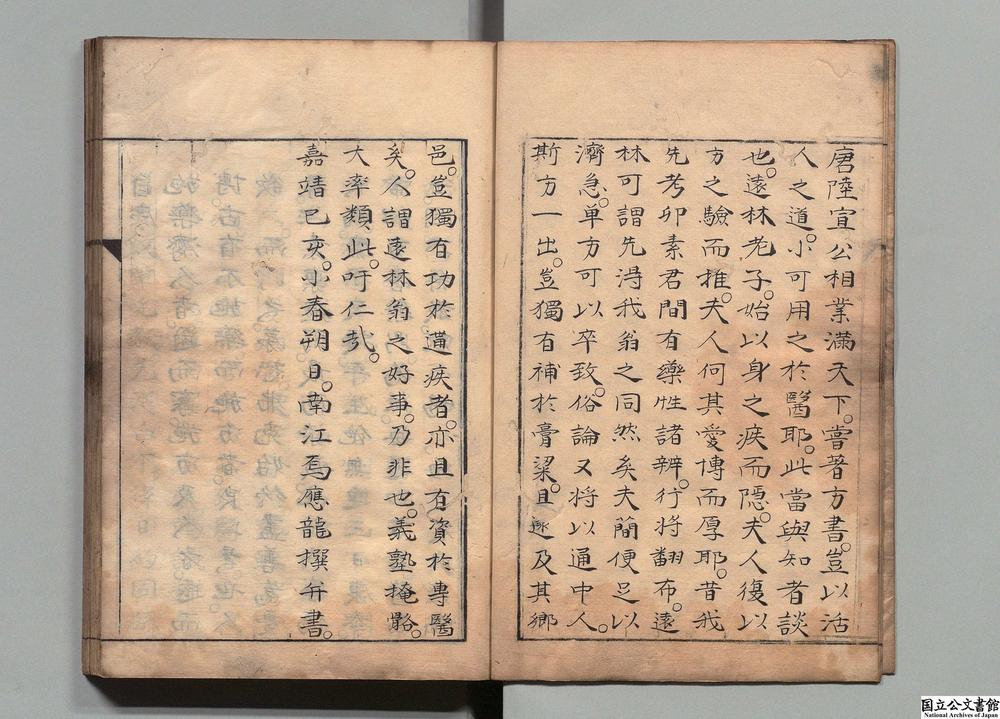 唐陸宣公相業滿天下。嘗著方書。豈以活
人之道。小可用之於醫耶。此當與知者談
也。遠林老子。始以身之疾而隱。夫人復以
方之驗而推。夫人何其愛博而厚耶。昔我
先考卯素君間有藥性諸辨。行將翻布。遠
林可謂先淂我翁之同然矣夫簡便足以
濟急。单方可以卒致。俗論又將以通中人。
斯方一出。豈獨有補於膏粱。且遂及其鄉
邑。豈獨有功於遘疾者。亦且有資於専醫
矣。人謂遠林翁之好事。乃非也。義塾掩骼。
大率類此。吁仁哉。
嘉靖己亥。小春朔日。南江焉應龍撰并書。
国立公文書館
National Archives of Japan